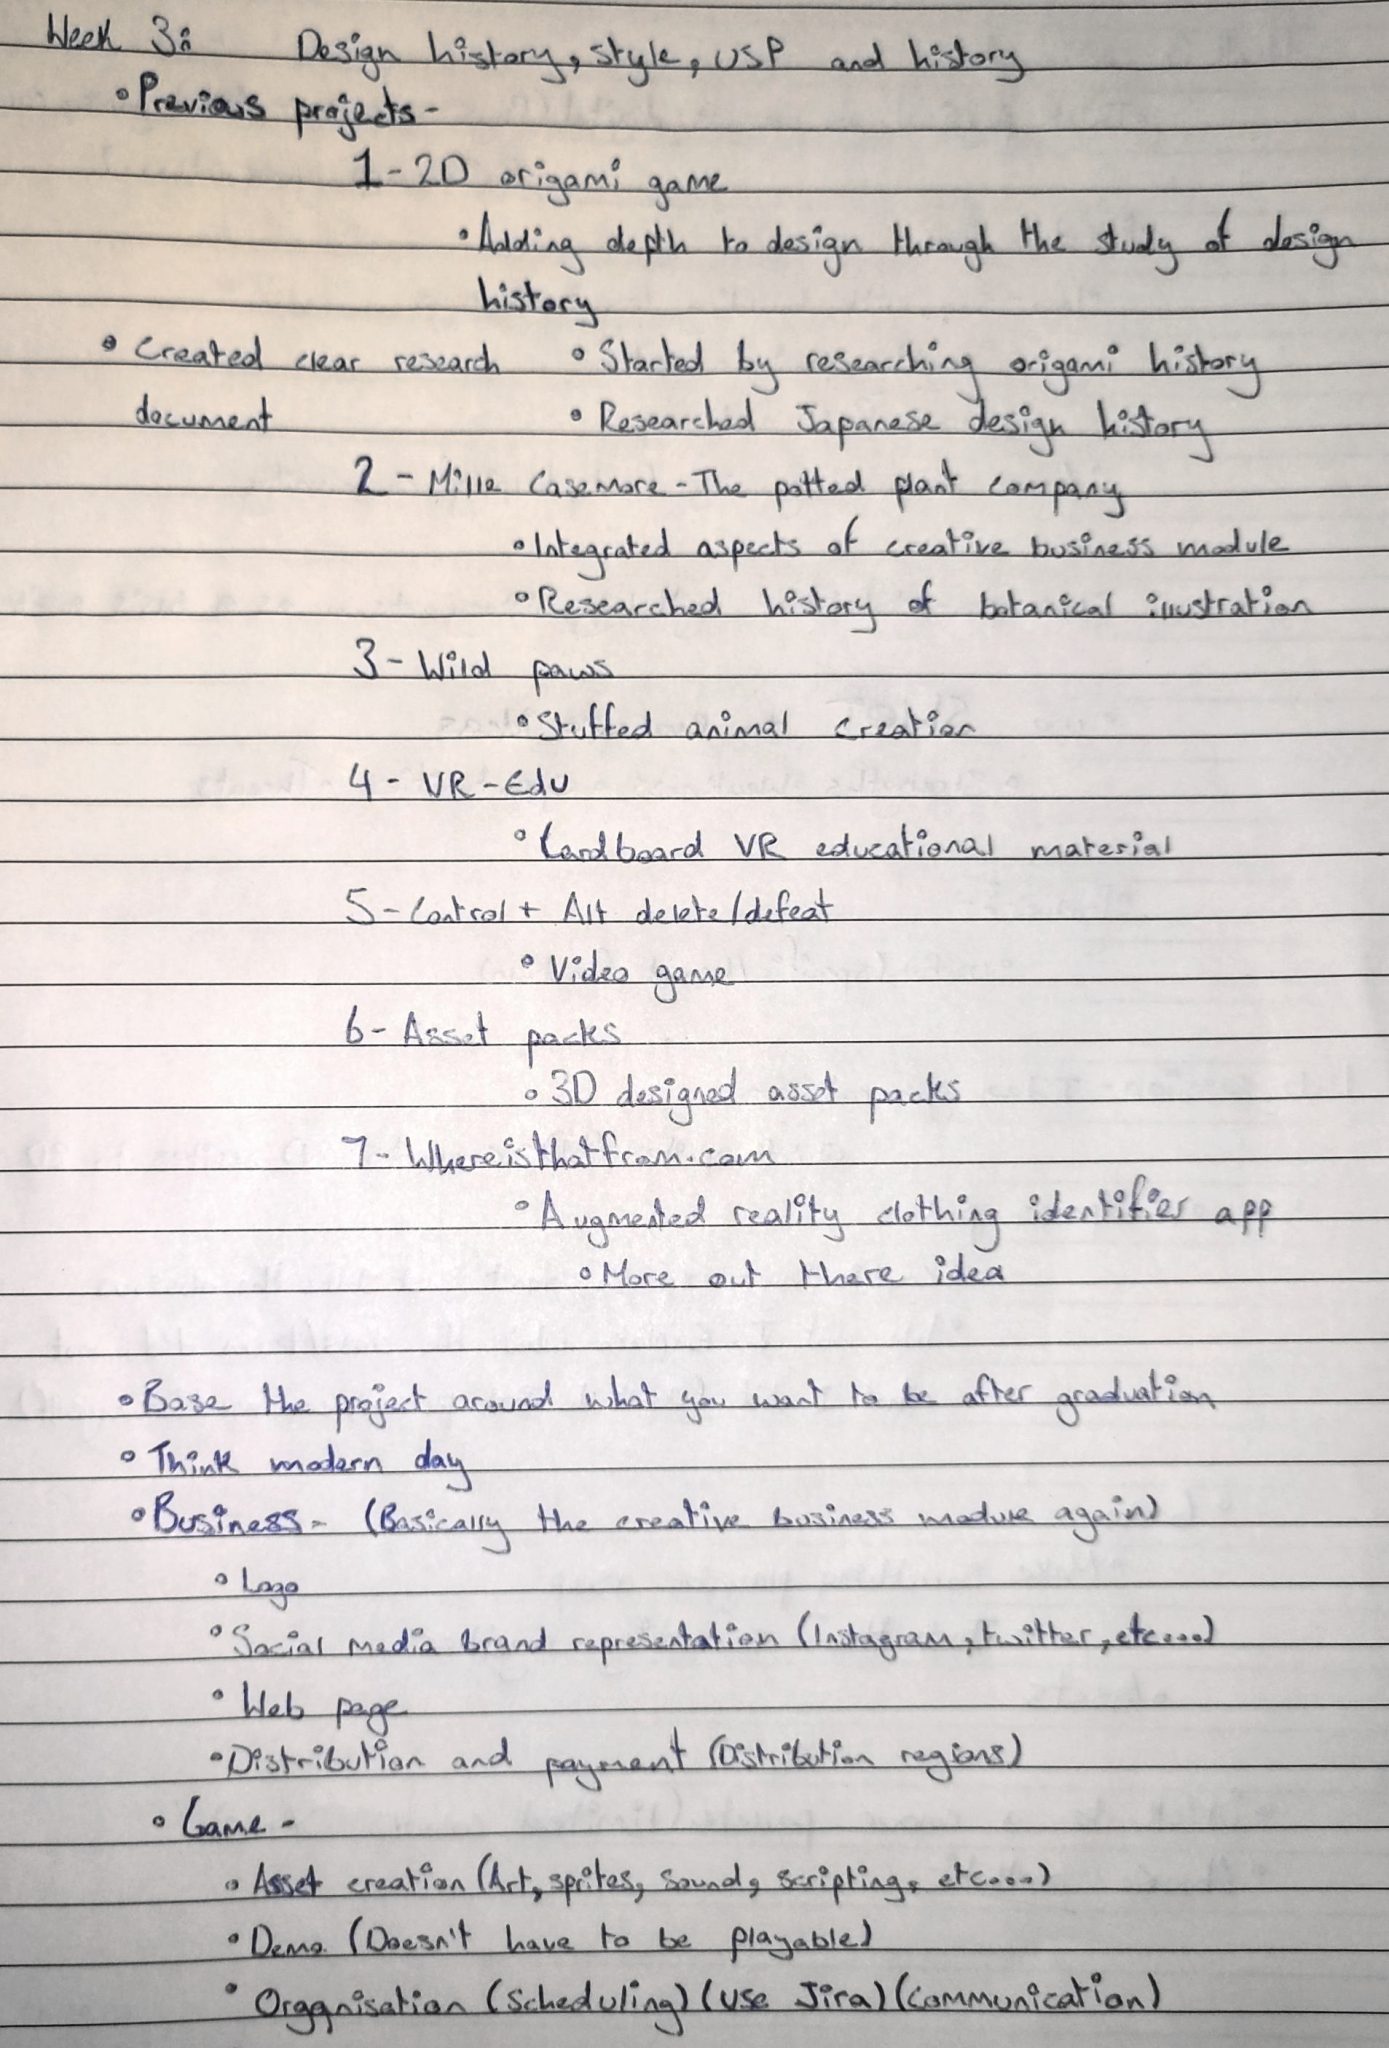 Week 3: Design history, style, USP and history
• Previous projects-
1-2D origami game
• Adding depth to design through the study of design
history
• Created clear research • Started by researching origami history
document • Researched Japanese design history
2 - Mille Casemore - The potted plant company
• Integrated aspects of creative business module
• Researched history of botanical illustration
3 - Wild paws
• Stuffed animal creation
4 - VR-Edu
• Cardboard VR educational material
5 - Control + Alt delete/defeat
• Video game
6 - Asset packs
• 3D designed asset packs
7 - Whereisthatfrom.com
• Augmented reality clothing identifier app
• More out there idea
• Base the project around what you want to be after graduation
• Think modern day
• Business - (Basically the creative business module again)
• Logo
• Social media brand representation (Instagram, twitter, etc....)
• Web page
• Distribution and payment (Distribution regions)
• Game -
• Asset creation (Art, sprites, sound, scripting, etc....)
• Demo (Doesn't have to be playable)
• Organisation (Scheduling) (Use Jira) (Communication)